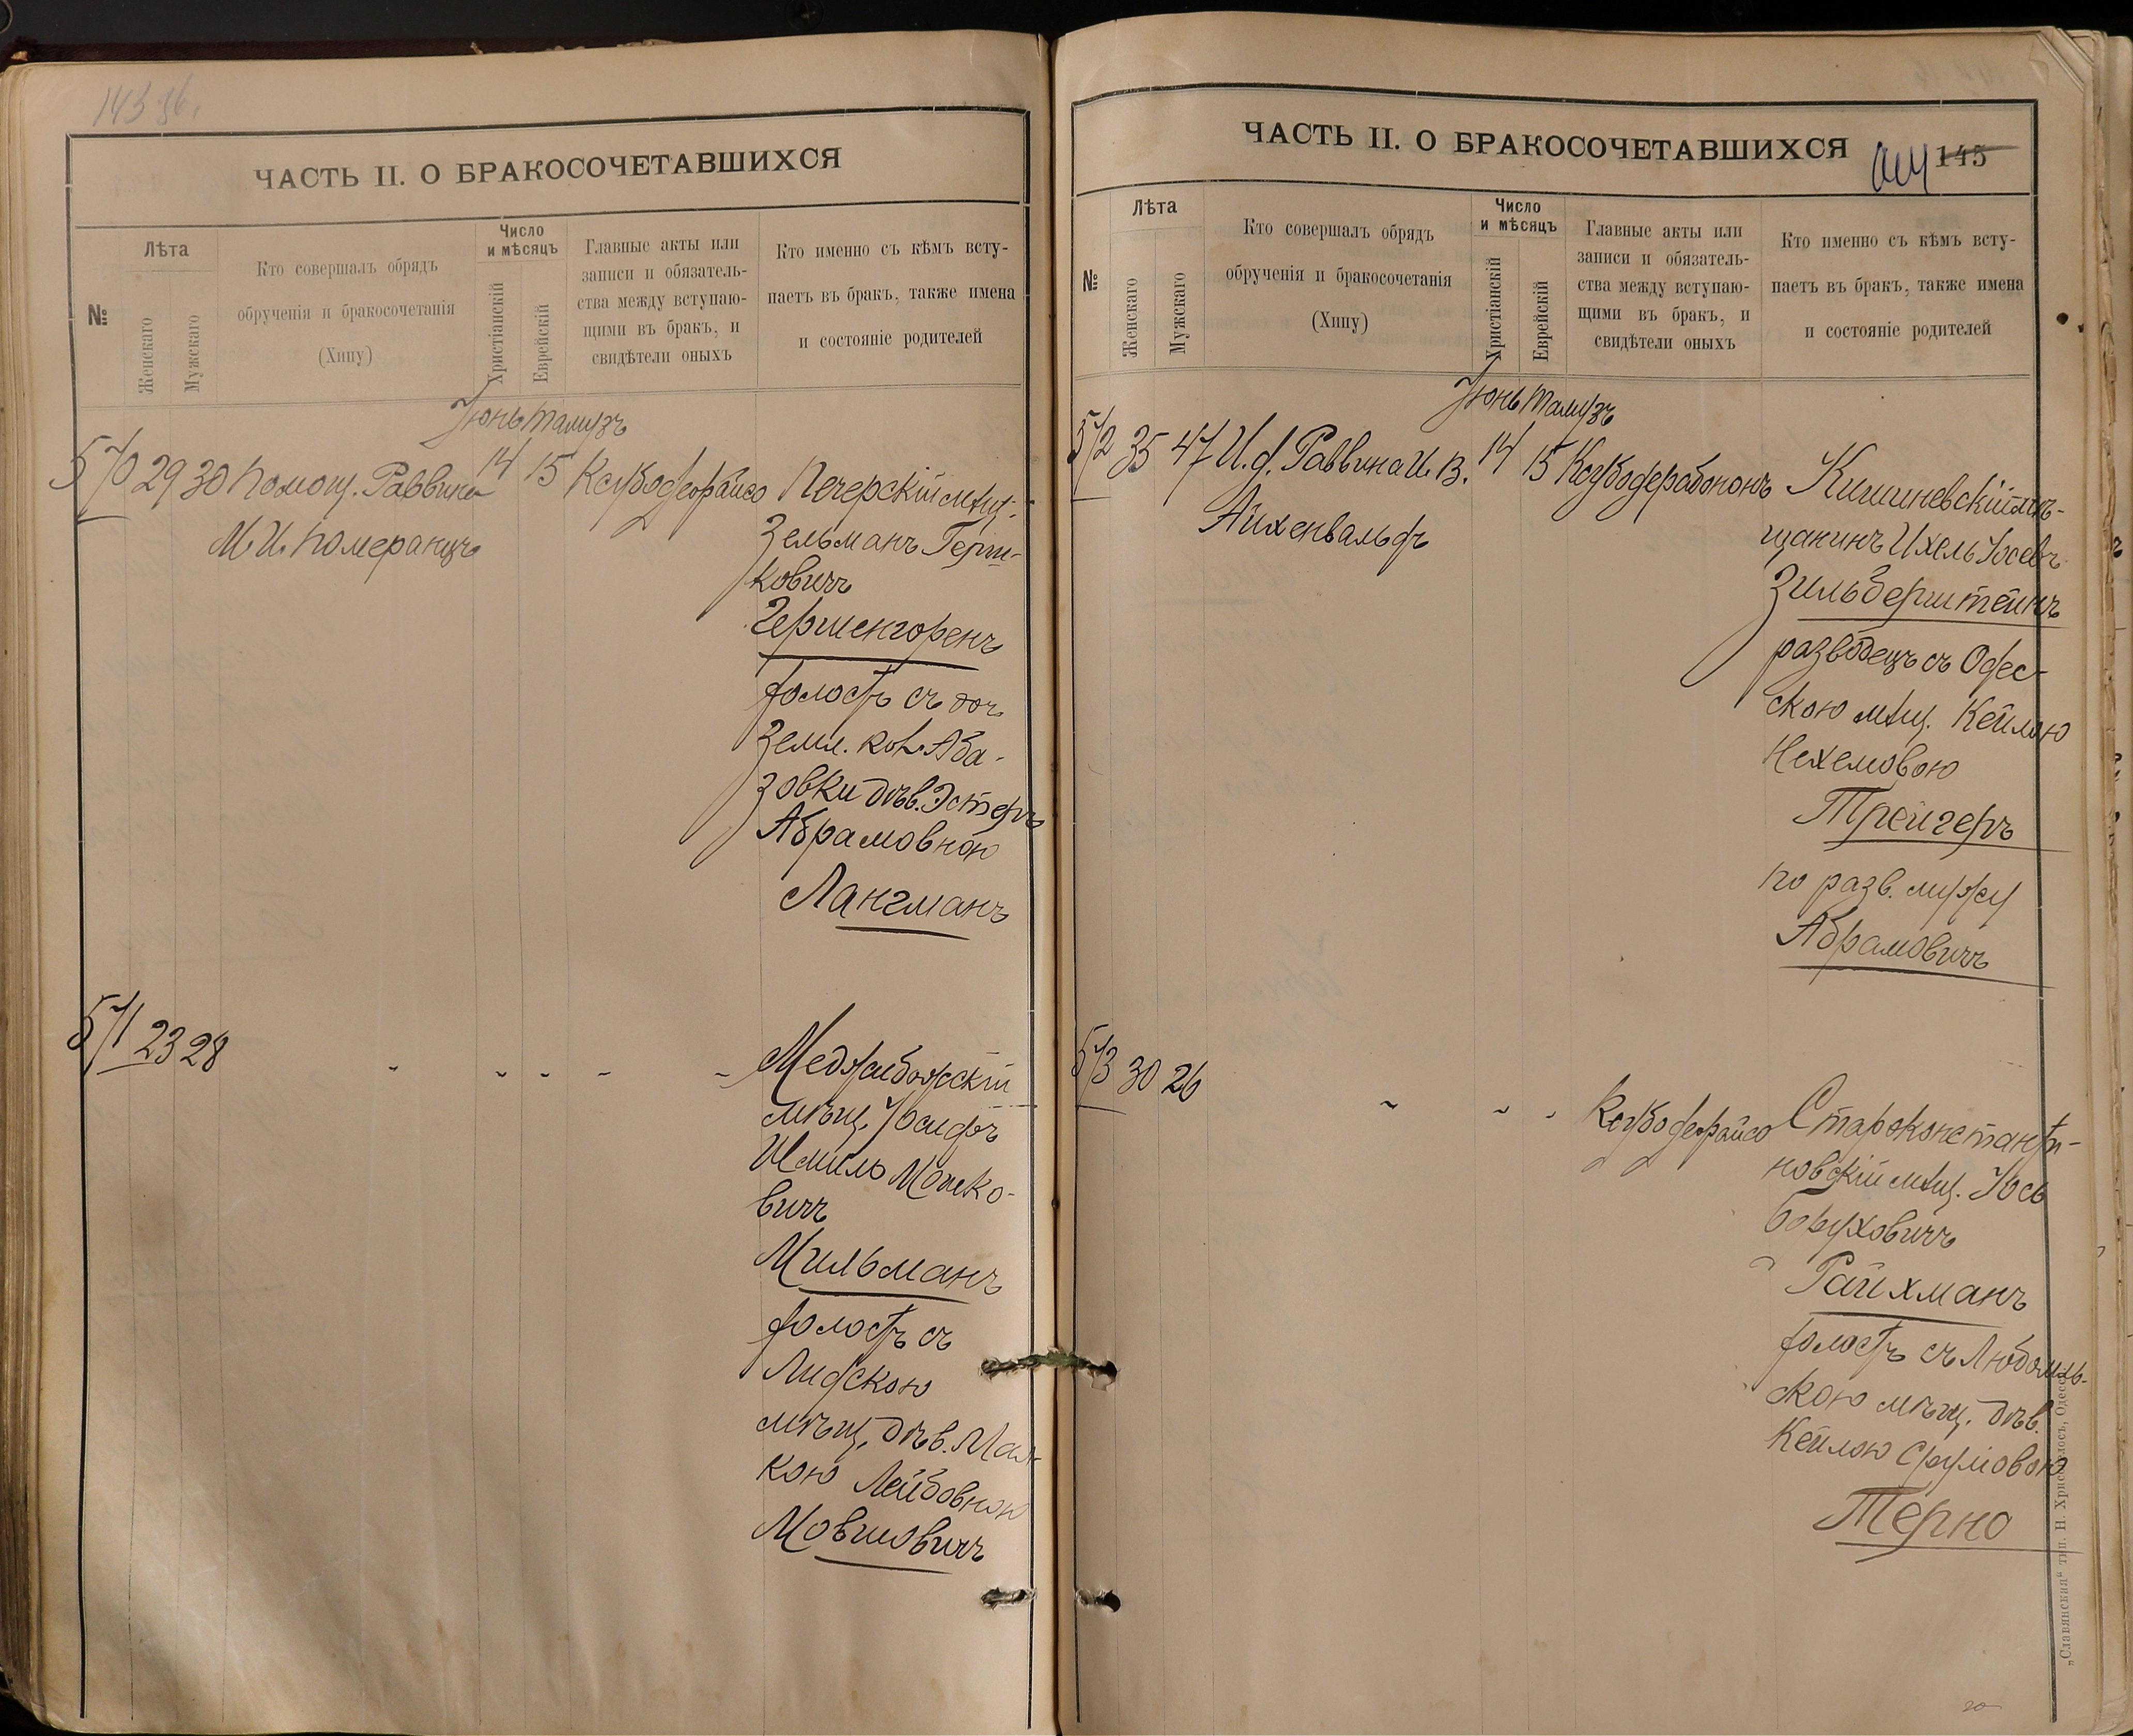 143 об.
ЧАСТЬ II. О БРАКОСОЧЕТАВШИХСЯ
№
Лѣта
Женскаго
Мужскаго
Кто совершалъ обрядъ
обрученія и бракосочетанія
(Хипу)
Число
и мѣсяцъ
Христіанскій
Еврейскій
Главные акты или
записи и обязатель-
ства между вступаю-
щими въ бракъ, и
свидѣтели оныхъ
Кто именно съ кѣмъ всту-
паетъ въ бракъ, также имена
и состояніе родителей
Іюнь Тамузъ
570 29 30 Помощ. Раввина 14 15
М. И. Померанцъ
Печерскій мѣщ.
Зельманъ Герш-
ковичъ
Гершенгоренъ
холостъ съ доч.
Земл. кол. Аба-
зовки дѣв. Эстеръ
Абрамовною
Лангманъ
571 23 28 " " " " "
Меджибожскій
мѣщ. Іосифъ
Шмиль Мошко-
вичъ
Мильманъ
холостъ съ
Лидскою
мѣщ. дѣв. Мал-
кою Лейбовною
Мовшовичъ
ЧАСТЬ II. О БРАКОСОЧЕТАВШИХСЯ
145
№
Лѣта
Женскаго
Мужскаго
Кто совершалъ обрядъ
обрученія и бракосочетанія
(Хипу)
Число
и мѣсяцъ
Христіанскій
Еврейскій
Главные акты или
записи и обязатель-
ства между вступаю-
щими въ бракъ, и
свидѣтели оныхъ
Кто именно съ кѣмъ всту-
паетъ въ бракъ, также имена
и состояніе родителей
Іюнь Тамузъ
572 35 47 И. д. Раввина И. В. 14 15
Айхенвальдъ
Кишиневскій мѣ-
щанинъ Ихель Іосевъ
Зильберштейнъ
разводецъ съ Одес-
скою мѣщ. Кейлою
Нехемовою
Трейгеръ
по разв. мужу
Абрамовичъ
573 30 26 " " "
Староконстанти-
новскій мѣщ. Іось
Боруховичъ
Райхманъ
холостъ съ Любомль-
скою мѣщ. дѣв.
Кейлою Сруловою
Терно
„Славянская“ тип. Н. Хрисогелосъ, Одесса.